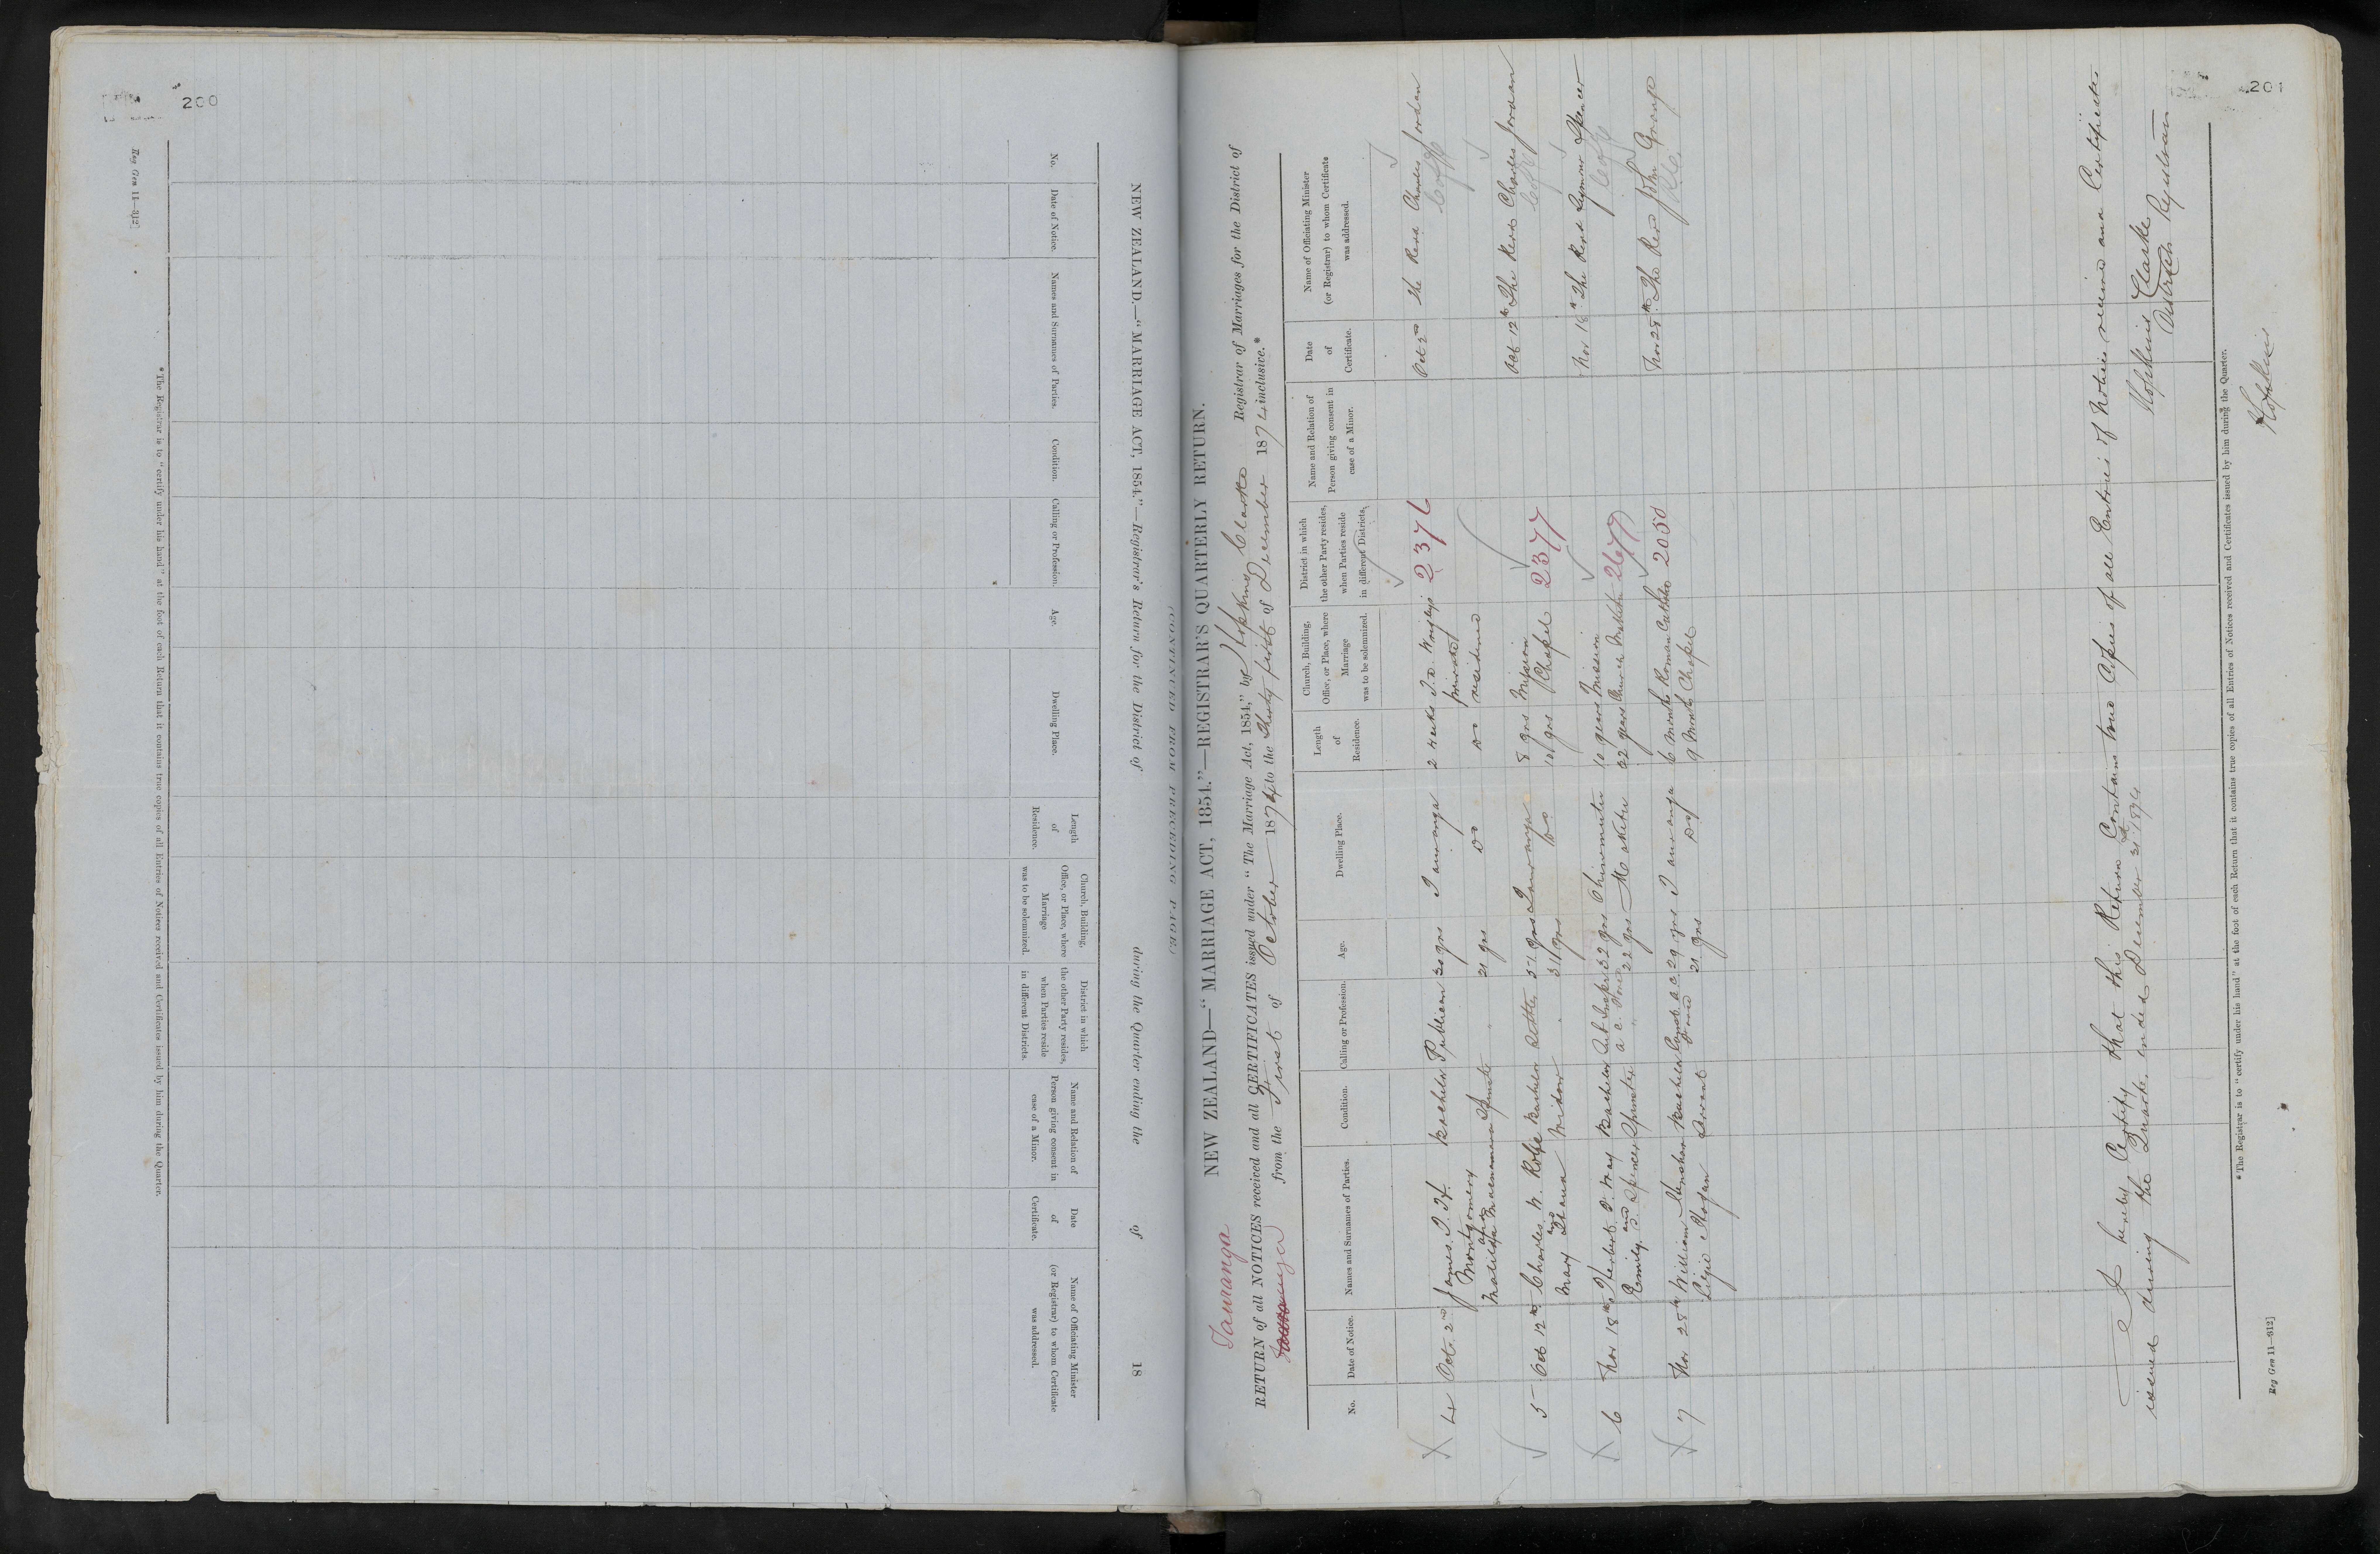 200
Reg Gen 11—312]
NEW ZEALAND.—"MARRIAGE ACT, 1854."—Registrar's Return for the District of during the Quarter ending the of 18
No.
Date of Notice.
Names and Surnames of Parties.
Condition.
Calling or Profession.
Age.
Dwelling Place.
Length
of
Residence.
Church, Building,
Office, or Place, where
Marriage
was to be solemnized.
District in which
the other Party resides,
when Parties reside
in different Districts.
Name and Relation of
Person giving consent in
case of a Minor.
Date
of
Certificate.
Name of Officiating Minister
(or Registrar) to whom Certificate
was addressed.
*The Registrar is to "certify under his hand" at the foot of each Return that it contains true copies of all Entries of Notices received and Certificates issued by him during the Quarter.
(CONTINUED FROM PRECEDING PAGE)
201
Tauranga
NEW ZEALAND—"MARRIAGE ACT, 1854."—REGISTRAR'S QUARTERLY RETURN.
RETURN of all NOTICES received and all CERTIFICATES issued under "The Marriage Act, 1854," by Hopkins Clarke Registrar of Marriages for the District of
Tauranga from the First of October 1874 to the Thirty first of December 1874 inclusive.*
No.
Date of Notice.
Names and Surnames of Parties.
Condition.
Calling or Profession.
Age.
Dwelling Place.
Length
of
Residence.
Church, Building,
Office, or Place, where
Marriage
was to be solemnized.
District in which
the other Party resides,
when Parties reside
in different Districts.
Name and Relation of
Person giving consent in
case of a Minor.
Date
of
Certificate.
Name of Officiating Minister
(or Registrar) to whom Certificate
was addressed.
4 Oct. 2nd James. J. H. Bachelor Publican 30 yrs Tauranga 2 weeks 2376 Oct 2nd The Revd Charles Jordan
Montgomery private
and
Matilda Spinster " 21 yrs Do Do residence
5 Oct 12th Charles W. Rolfe Bachelor Settler 51 yrs Tauranga 8 yrs Mission 2377 Oct 12th The Revd Charles Jordan
and
Mary Diana Widow " 31 yrs Do 10 yrs Chapel
6 Nov 18th Herbert Bachelor Sub Inspr 32 yrs Ohinemutu 10 years Mission 2677 Nov 18th The Revd Seymour Spencer
and A C Force
Emily. S. Spencer Spinster " 22 yrs Maketu 22 years Church Maketu
7 Nov 28th William Bachelor Const. A C 29 yrs Tauranga 6 months Roman Catholic 2050 Nov 28th The Revd John
Hogan Servant 21 yrs Do 9 months Chapel
I hereby Certify that this Return Contains true Copies of all Entries of Notices received and Certificates
issued during the Quarter ended December 31st 1874
Hopkins Clarke
District Registrar
*The Registrar is to "certify under his hand" at the foot of each Return that it contains true copies of all Entries of Notices received and Certificates issued by him during the Quarter.
Reg Gen 11—312]
Hopkins